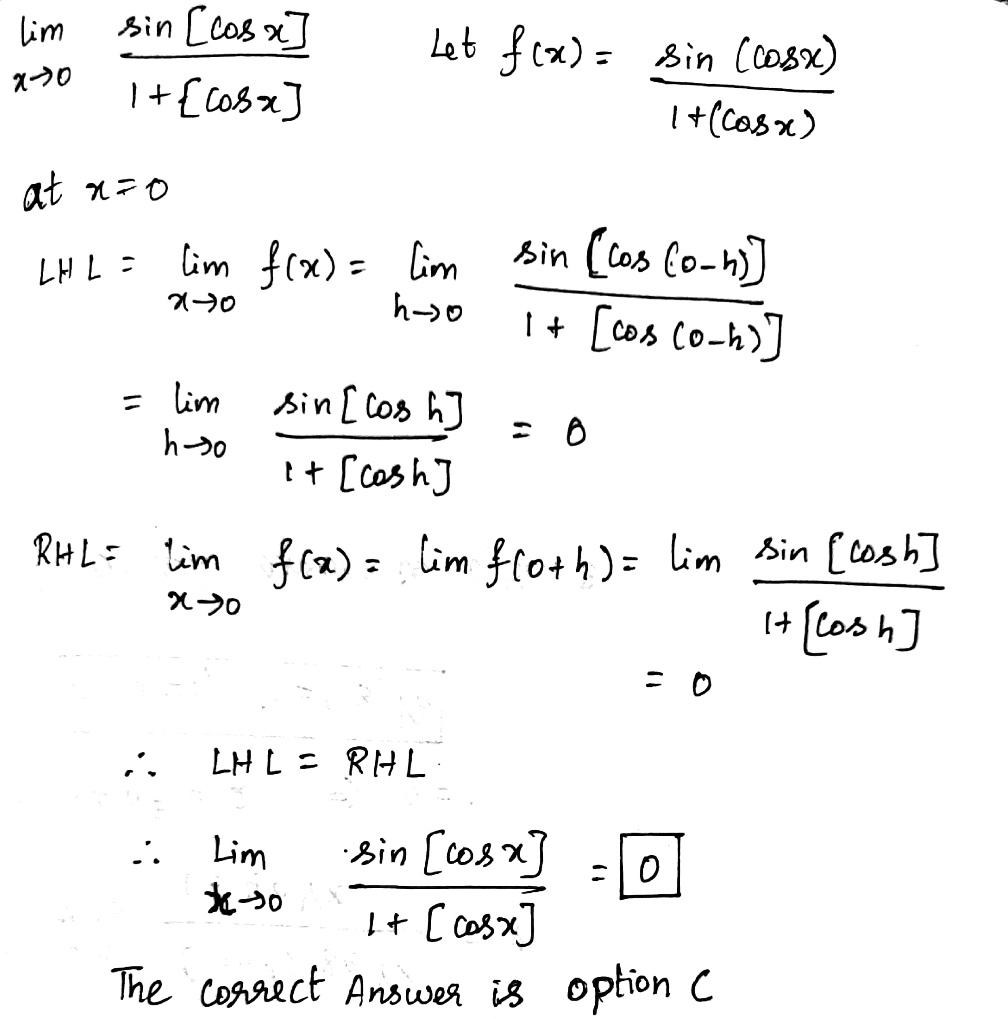 lim sin [cos x] / 1+[cos x]    Let f(x) = sin (cosx) / 1+(cosx)
x→0
at x=0
LHL = lim f(x) = lim sin [cos (0-h)] / 1+ [cos (0-h)]
x→0 h→0
= lim sin [cos h] / 1+ [cosh] = 0
h→0
RHL = lim f(x) = lim f(0+h) = lim sin [cosh] / 1+ [cos h]
x→0
= 0
∴ LHL = RHL
∴ Lim sin [cos x] / 1+ [cosx] = 0
x→0
The correct Answer is option C